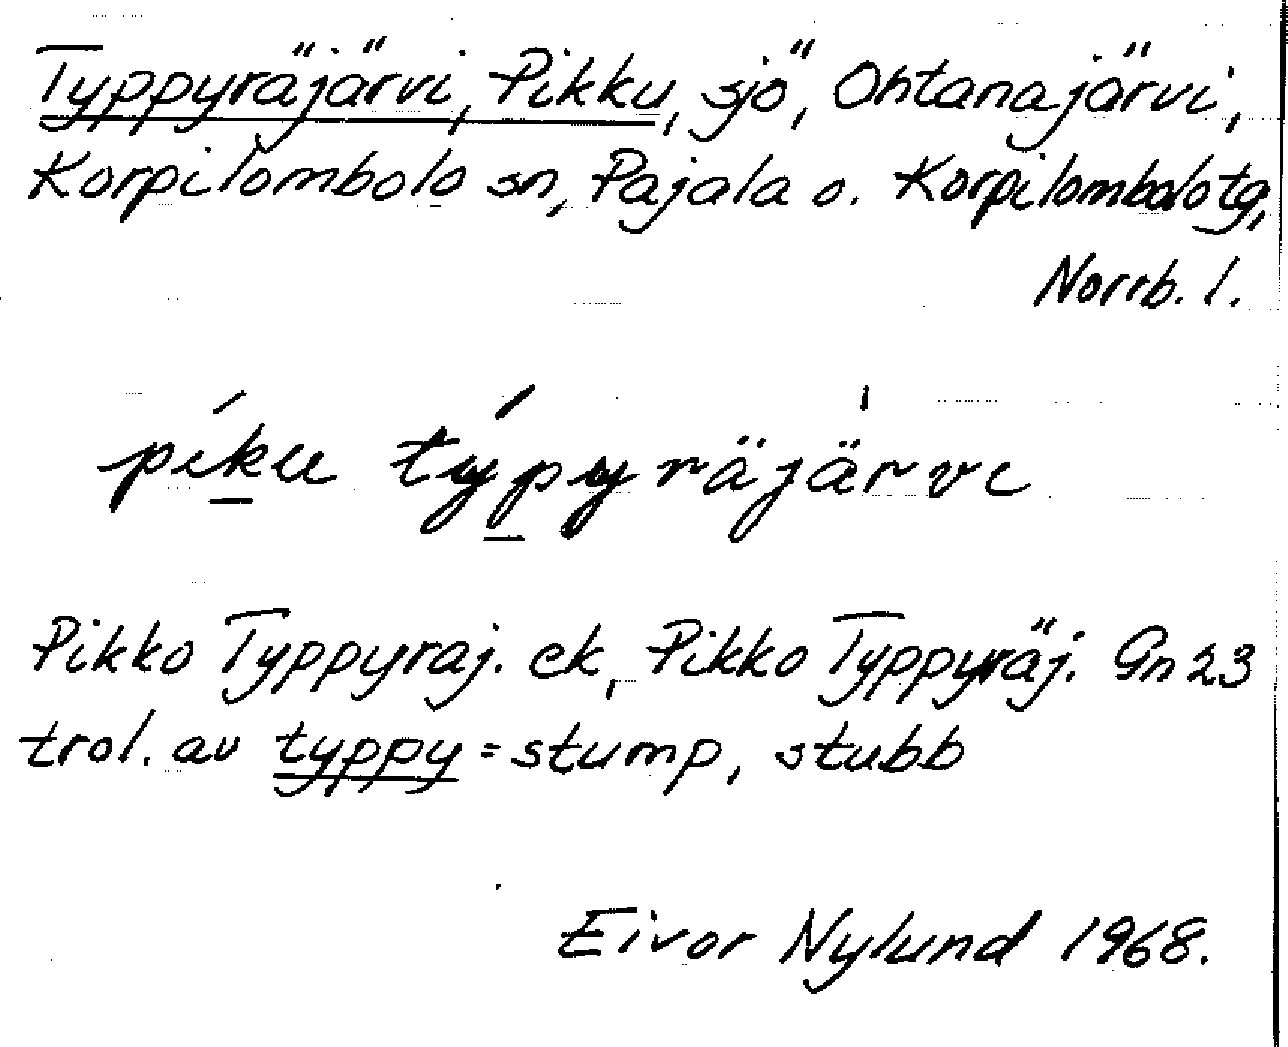 Typpyräjärvi, Pikku, sjö, Ohtanajärvi,
Korpilombolo sn, Pajala o. Korpilombolo tg,
Norrb. l.
píku týpyräjärvi
Pikko Typpyraj. ek, Pikko Typpyräj. Gn 23
trol. av typpy = stump, stubb
Eivor Nylund 1968.